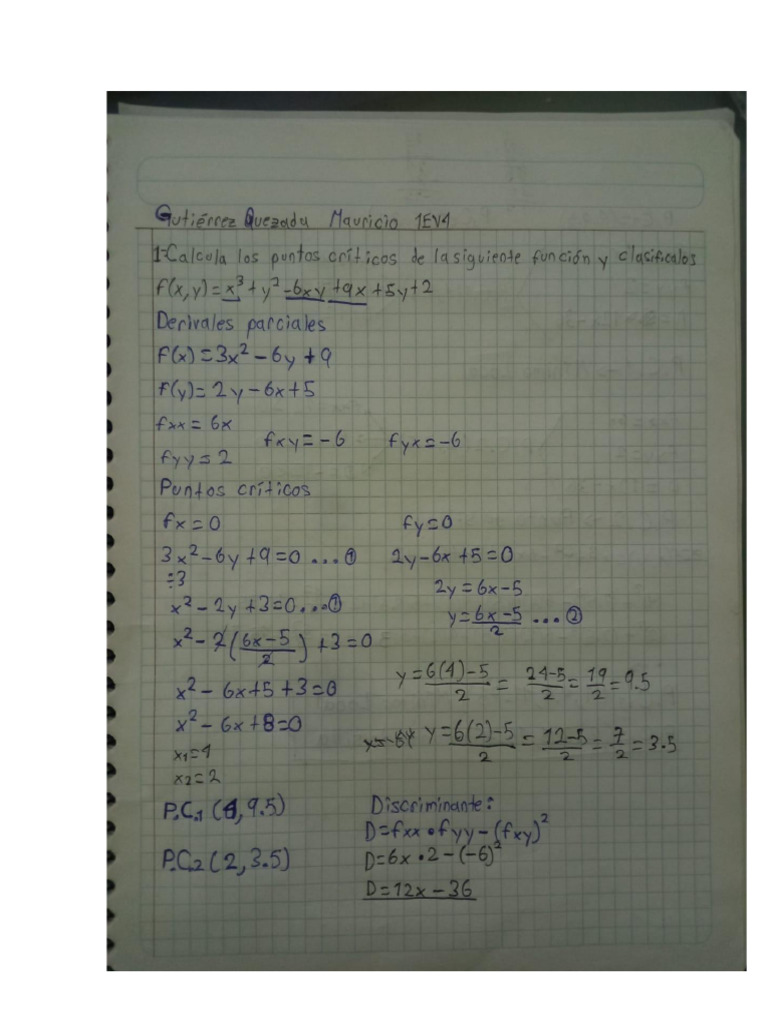 Gutiérrez Quezada Mauricio 1EV4
1-Calcula los puntos críticos de la siguiente función y clasificalos
f(x,y)=x³+y²-6xy+9x+5y+2
Derivales parciales
f(x)=3x²-6y+9
f(y)=2y-6x+5
fxx=6x
fxy=-6 fyx=-6
fyy=2
Puntos críticos
fx=0 fy=0
3x²-6y+9=0 ...① 2y-6x+5=0
÷3 2y=6x-5
x²-2y+3=0...① y=(6x-5)/2 ...②
x²-2((6x-5)/2)+3=0
y=(6(4)-5)/2=(24-5)/2=19/2=9.5
x²-6x+5+3=0
x²-6x+8=0 y=(6(2)-5)/2=(12-5)/2=7/2=3.5
x₁=4
x₂=2
P.C.1(4,9.5) Discriminante:
D=fxx•fyy-(fxy)²
P.C.2(2,3.5) D=6x•2-(-6)²
D=12x-36